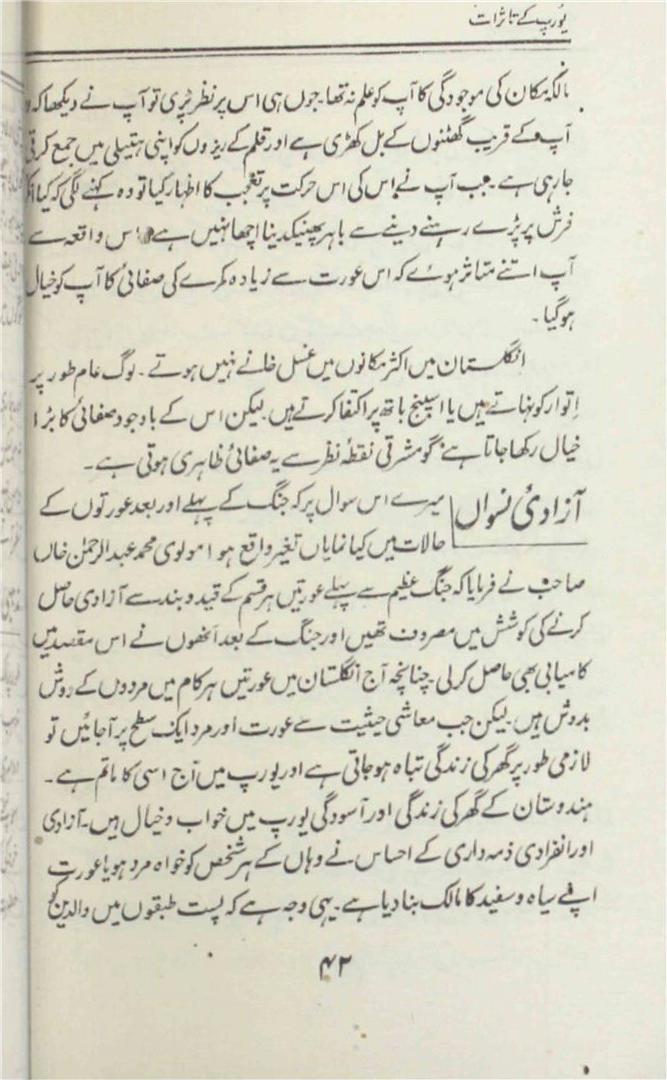 یورپ کے تاثرات
مالکۂ مکان کی موجودگی کا آپ کو علم نہ تھا۔ جوں ہی اس پر نظر پڑی تو آپ نے دیکھا کہ وہ
آپ کے قریب گھٹنوں کے بل کھڑی ہے اور قلم کے ریزوں کو اپنی ہتیلی میں جمع کرتی
جا رہی ہے۔ جب آپ نے اس کی اس حرکت پر تعجب کا اظہار کیا تو وہ کہنے لگی کہ کیا
فرش پر پڑے رہنے دینے سے باہر پھینکدینا اچھا نہیں ہے اس واقعہ سے
آپ اتنے متاثر ہوئے کہ اس عورت سے زیادہ کمرے کی صفائی کا آپ کو خیال
ہوگیا۔
انگلستان میں اکثر مکانوں میں غسل خانے نہیں ہوتے۔ لوگ عام طور پر
اتوار کو نہاتے ہیں یا اسپنج باتھ پر اکتفا کرتے ہیں۔ لیکن اس کے باوجود صفائی کا بڑا
خیال رکھا جاتا ہے گو مشرقی نقطۂ نظر سے یہ صفائی ظاہری ہوتی ہے۔
آزادئ نسواں میرے اس سوال پر کہ جنگ کے پہلے اور بعد عورتوں کے
حالات میں کیا نمایاں تغیر واقع ہوا مولوی محمد عبدالرحمٰن خاں
صاحب نے فرمایا کہ جنگ عظیم سے پہلے عورتیں ہر قسم کے قید و بند سے آزادی حاصل
کرنے کی کوشش میں مصروف تھیں اور جنگ کے بعد انھوں نے اس مقصد میں
کامیابی بھی حاصل کر لی۔ چنانچہ آج انگلستان میں عورتیں ہر کام میں مردوں کے دوش
بدوش ہیں۔ لیکن جب معاشی حیثیت سے عورت اور مرد ایک سطح پر آجائیں تو
لازمی طور پر گھر کی زندگی تباہ ہو جاتی ہے اور یورپ میں آج اسی کا ماتم ہے۔
ہندوستان کے گھر کی زندگی اور آسودگی یورپ میں خواب و خیال ہیں۔ آزادی
اور انفرادی ذمہ داری کے احساس نے وہاں کے ہر شخص کو خواہ مرد ہو یا عورت
اپنے سیاہ و سفید کا مالک بنا دیا ہے۔ یہی وجہ ہے کہ پست طبقوں میں والدین کو
۴۲